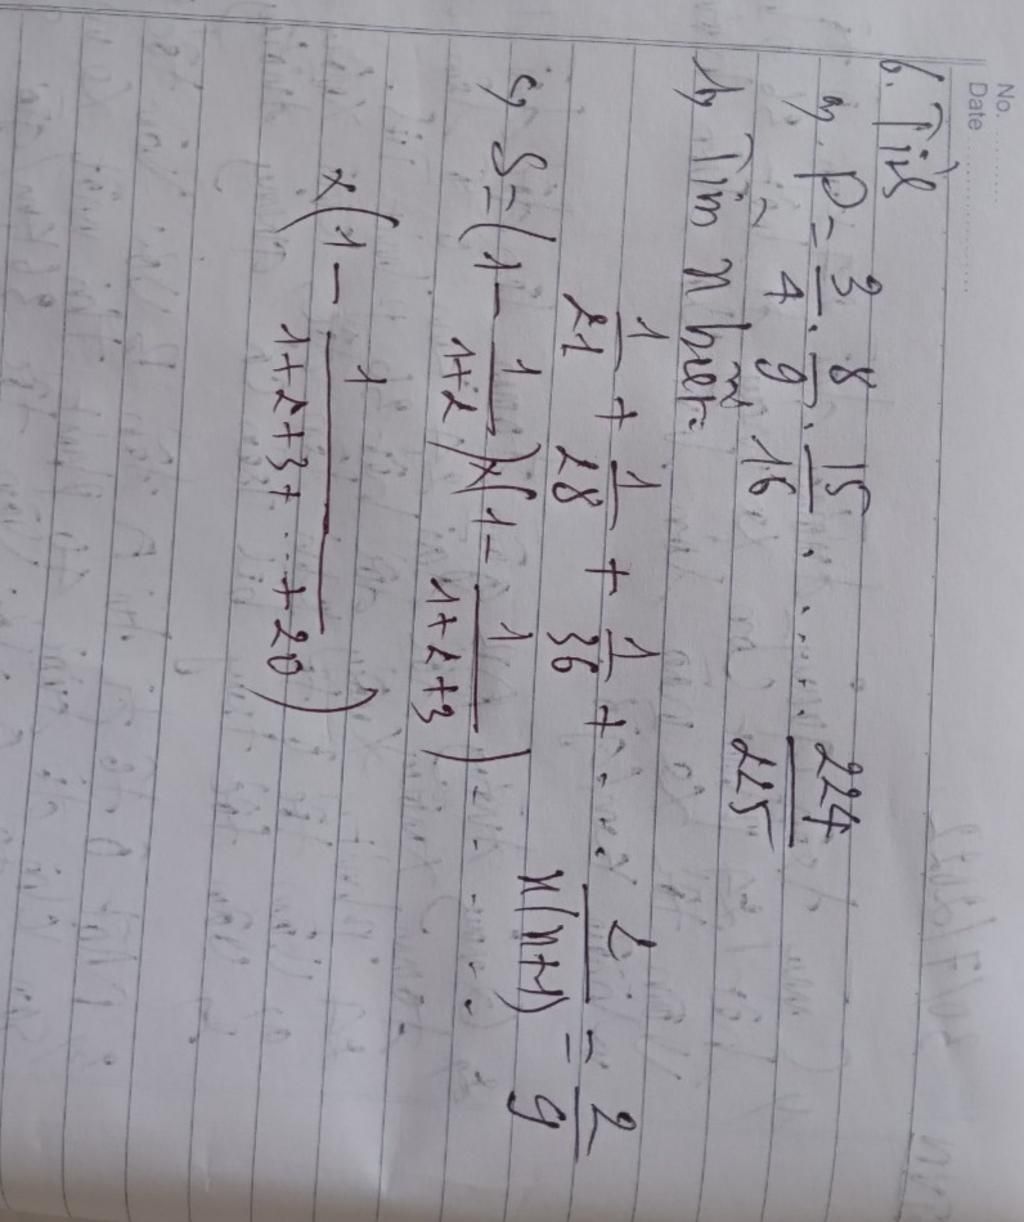 No.
Date
6. Tính
a, P = 3/4 . 8/9 . 15/16 . ...... 224/225
b, Tìm x biết:
1/21 + 1/28 + 1/36 + ... 2/x(x+1) = 2/9
c, S = (1 - 1/1+2) x (1 - 1/1+2+3)
x (1 - 1/1+2+3+...+20)